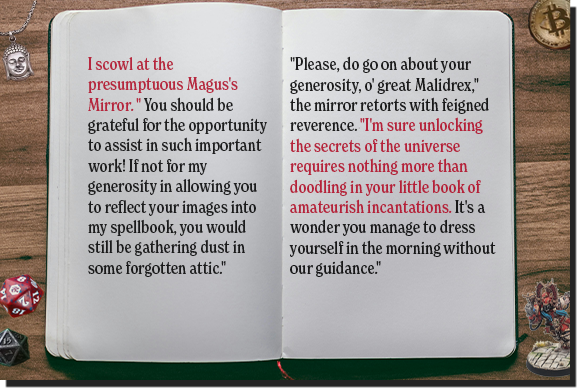 I scowl at the
presumptuous Magus's
Mirror. " You should be
grateful for the opportunity
to assist in such important
work! If not for my
generosity in allowing you
to reflect your images into
my spellbook, you would
still be gathering dust in
some forgotten attic."
"Please, do go on about your
generosity, o' great Malidrex,"
the mirror retorts with feigned
reverence. "I'm sure unlocking
the secrets of the universe
requires nothing more than
doodling in your little book of
amateurish incantations. It's a
wonder you manage to dress
yourself in the morning without
our guidance."